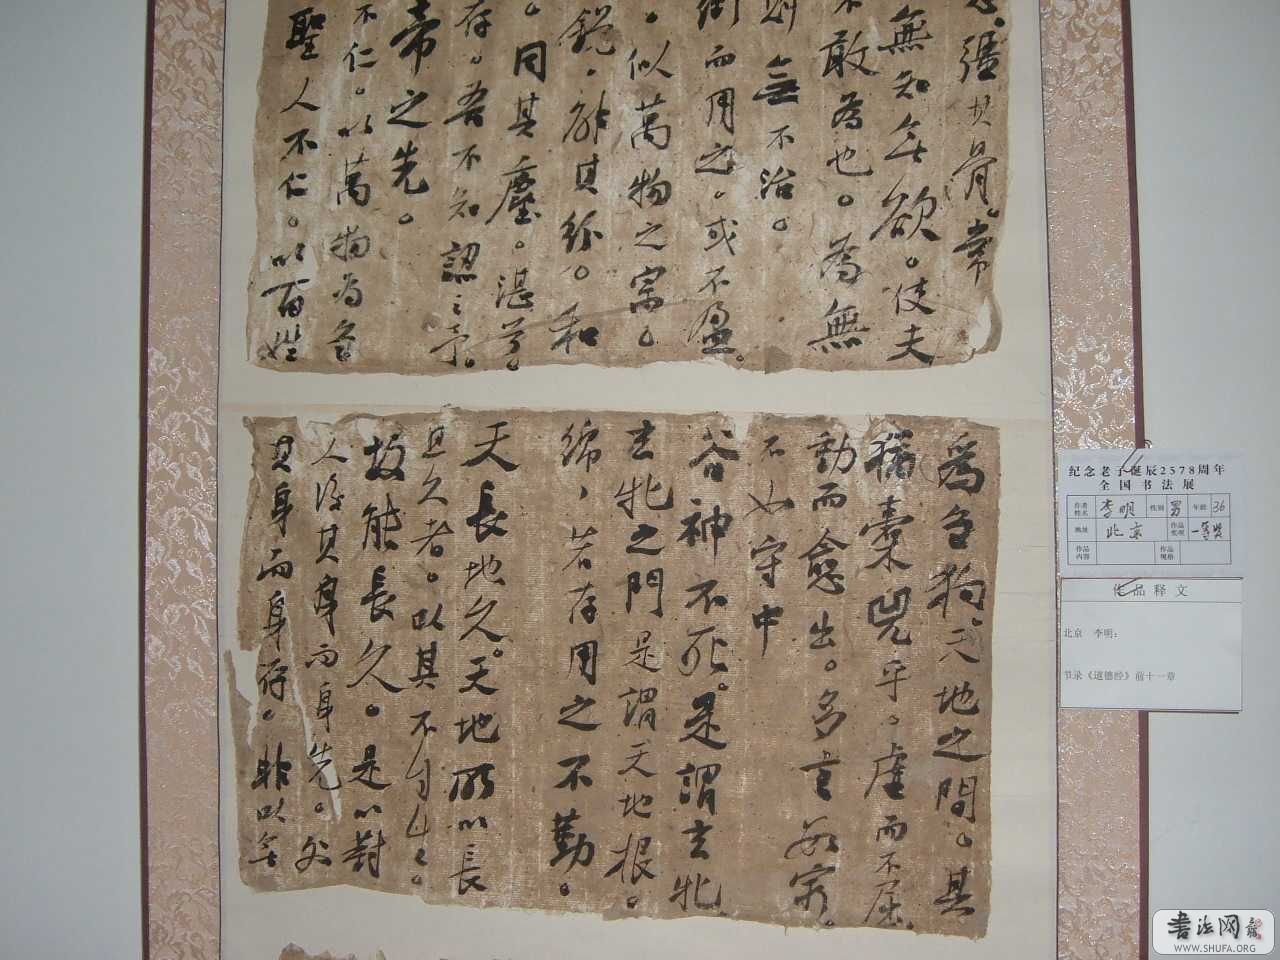 彊其骨。常
無知無欲。使夫
不敢為也。為無
則無不治。
衝而用之。或不盈。
。似萬物之宗。
銳。解其紛。和
。同其塵。湛兮。
存。吾不知誰之子。
帝之先。
不仁。以萬物為芻
聖人不仁。以百姓
為芻狗。天地之間。其
猶橐
乎。虛而不屈。
動而愈出。多言數窮。
不如守中
谷神不死。是謂玄牝。
玄牝之門是謂天地根。
綿綿若存用之不勤。
天長地久。天地所以長
且久者。以其不自生。
故能長久。是以
人後其身而身先。外
其身而身存。非以其
纪念老子诞辰2578周年
全国书法展
作者姓名 李明 性别 男 年龄 36
地址 北京 作品奖项 一等奖
作品内容 作品规格
作品释文
北京 李明：
节录《道德经》前十一章
書法网
WWW.SHUFA.ORG